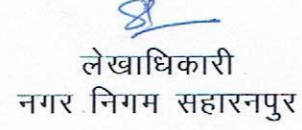 लेखाधिकारी
नगर निगम सहारनपुर